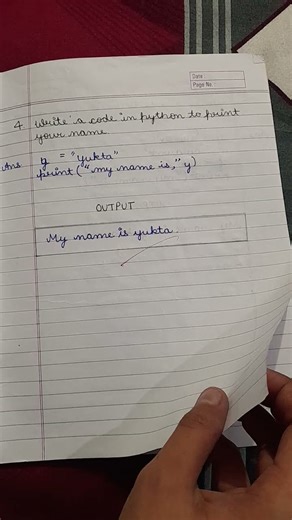 Date :
Page No :
4. Write a code in python to print
your name
Ans y = "yukta"
print ("my name is," y)
OUTPUT
My name is yukta.